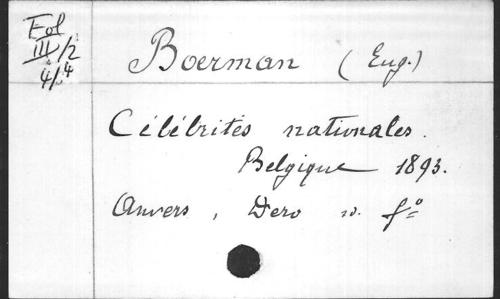 Fol
III/2
4/4
Boerman (Eug.)
Célébrités nationales.
Belgique 1893.
Anvers, Dero fº